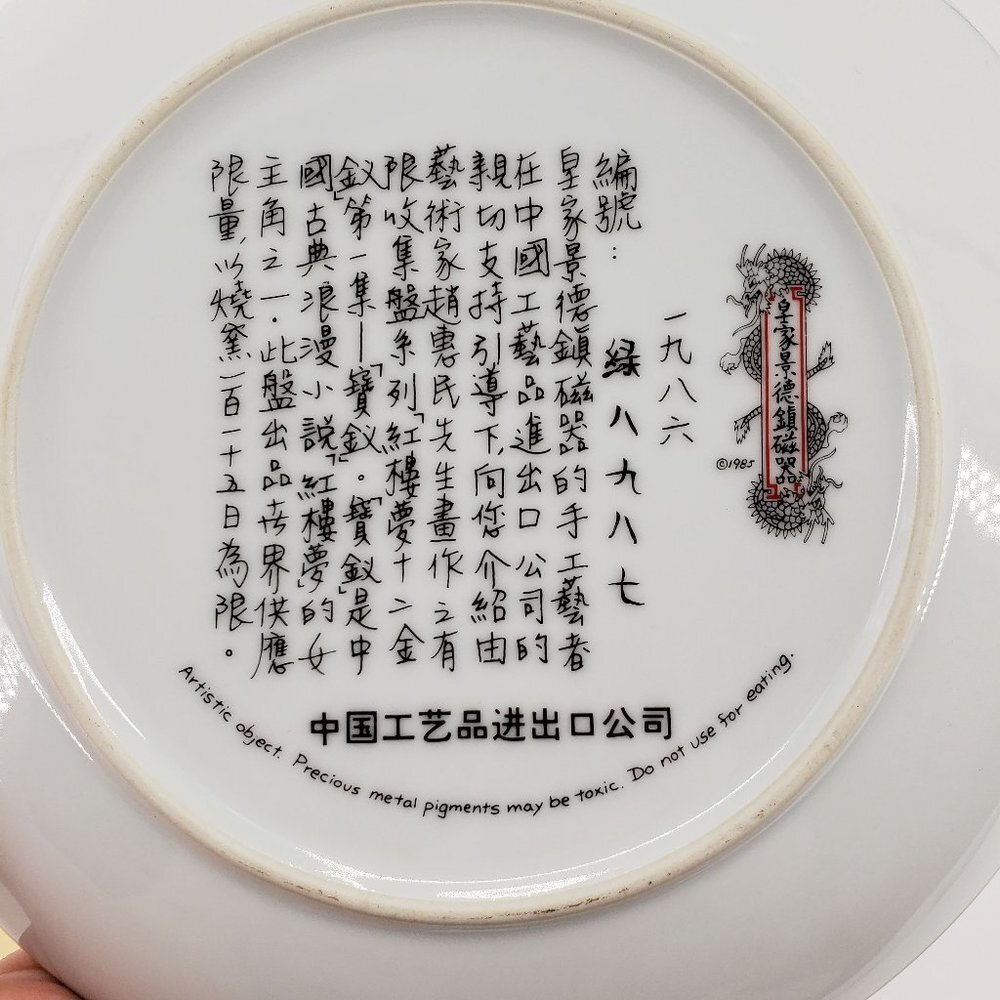 皇家景德鎮磁器
©1985
一九八六
編號：綠八九八七
皇家景德鎮磁器的手工藝者
在中國工藝品進出口公司的
親切支持引導下，向您介紹由
藝術家趙惠民先生畫作之有
限收集盤系列「紅樓夢十二金
釵」第一集—「寶釵」。「寶釵」是中
國古典浪漫小説「紅樓夢」的女
主角之一．此盤出品世界供應
限量，以燒窯一百一十五日為限。
中国工艺品进出口公司
Artistic object. Precious metal pigments may be toxic. Do not use for eating.